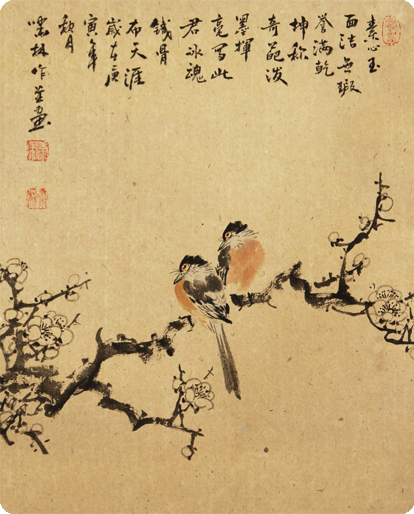 素心玉
面洁無瑕
誉滿乾
坤称
奇葩泼
墨揮
毫写此
君冰魂
鐵骨
布天涯
歲在庚
寅年
秋月
嘯林作並畫